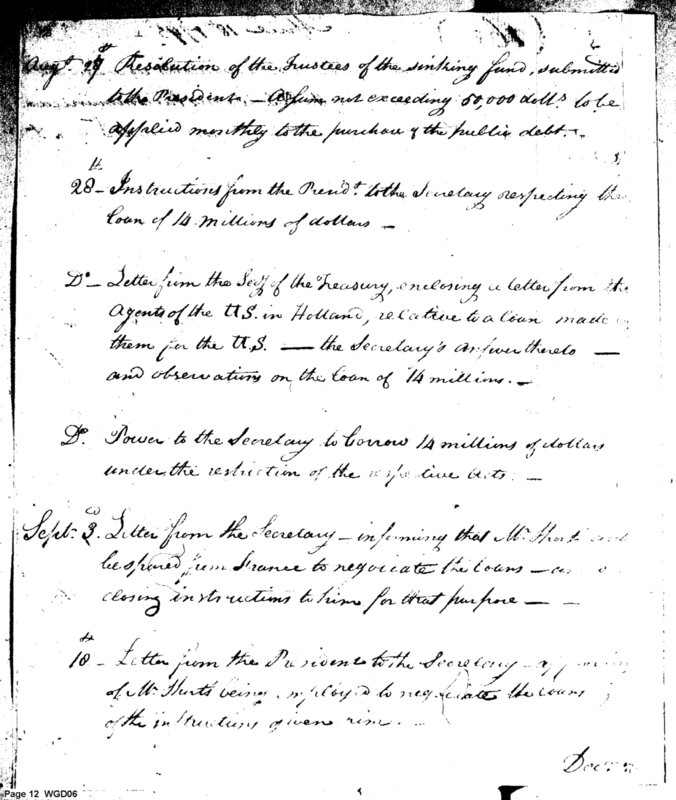 Augt. 27th Resolution of the Trustees of the sinking fund, submitted
to the President. — A sum not exceeding 50,000 dolls. to be
applied monthly to the purchase of the public debt. —
28th — Instructions from the Presidt. to the Secretary respecting the
loan of 14 millions of dollars —
Do. — Letter from the Secy. of the Treasury, enclosing a letter from the
Agents of the U.S. in Holland, relative to a loan made
them for the U.S. — the Secretary's answer thereto —
and observations on the loan of 14 millions. —
Do. Power to the Secretary to borrow 14 millions of dollars
under the restriction of the respective Acts. —
Sept. 3d. Letter from the Secretary — informing that Mr. Short
be spared from France to negociate the loans —
closing instructions to him for that purpose —
18th — Letter from the President to the Secretary —
of Mr. Short's being employed to negociate the loans
of the instructions given him. —
Page 12 WGD06